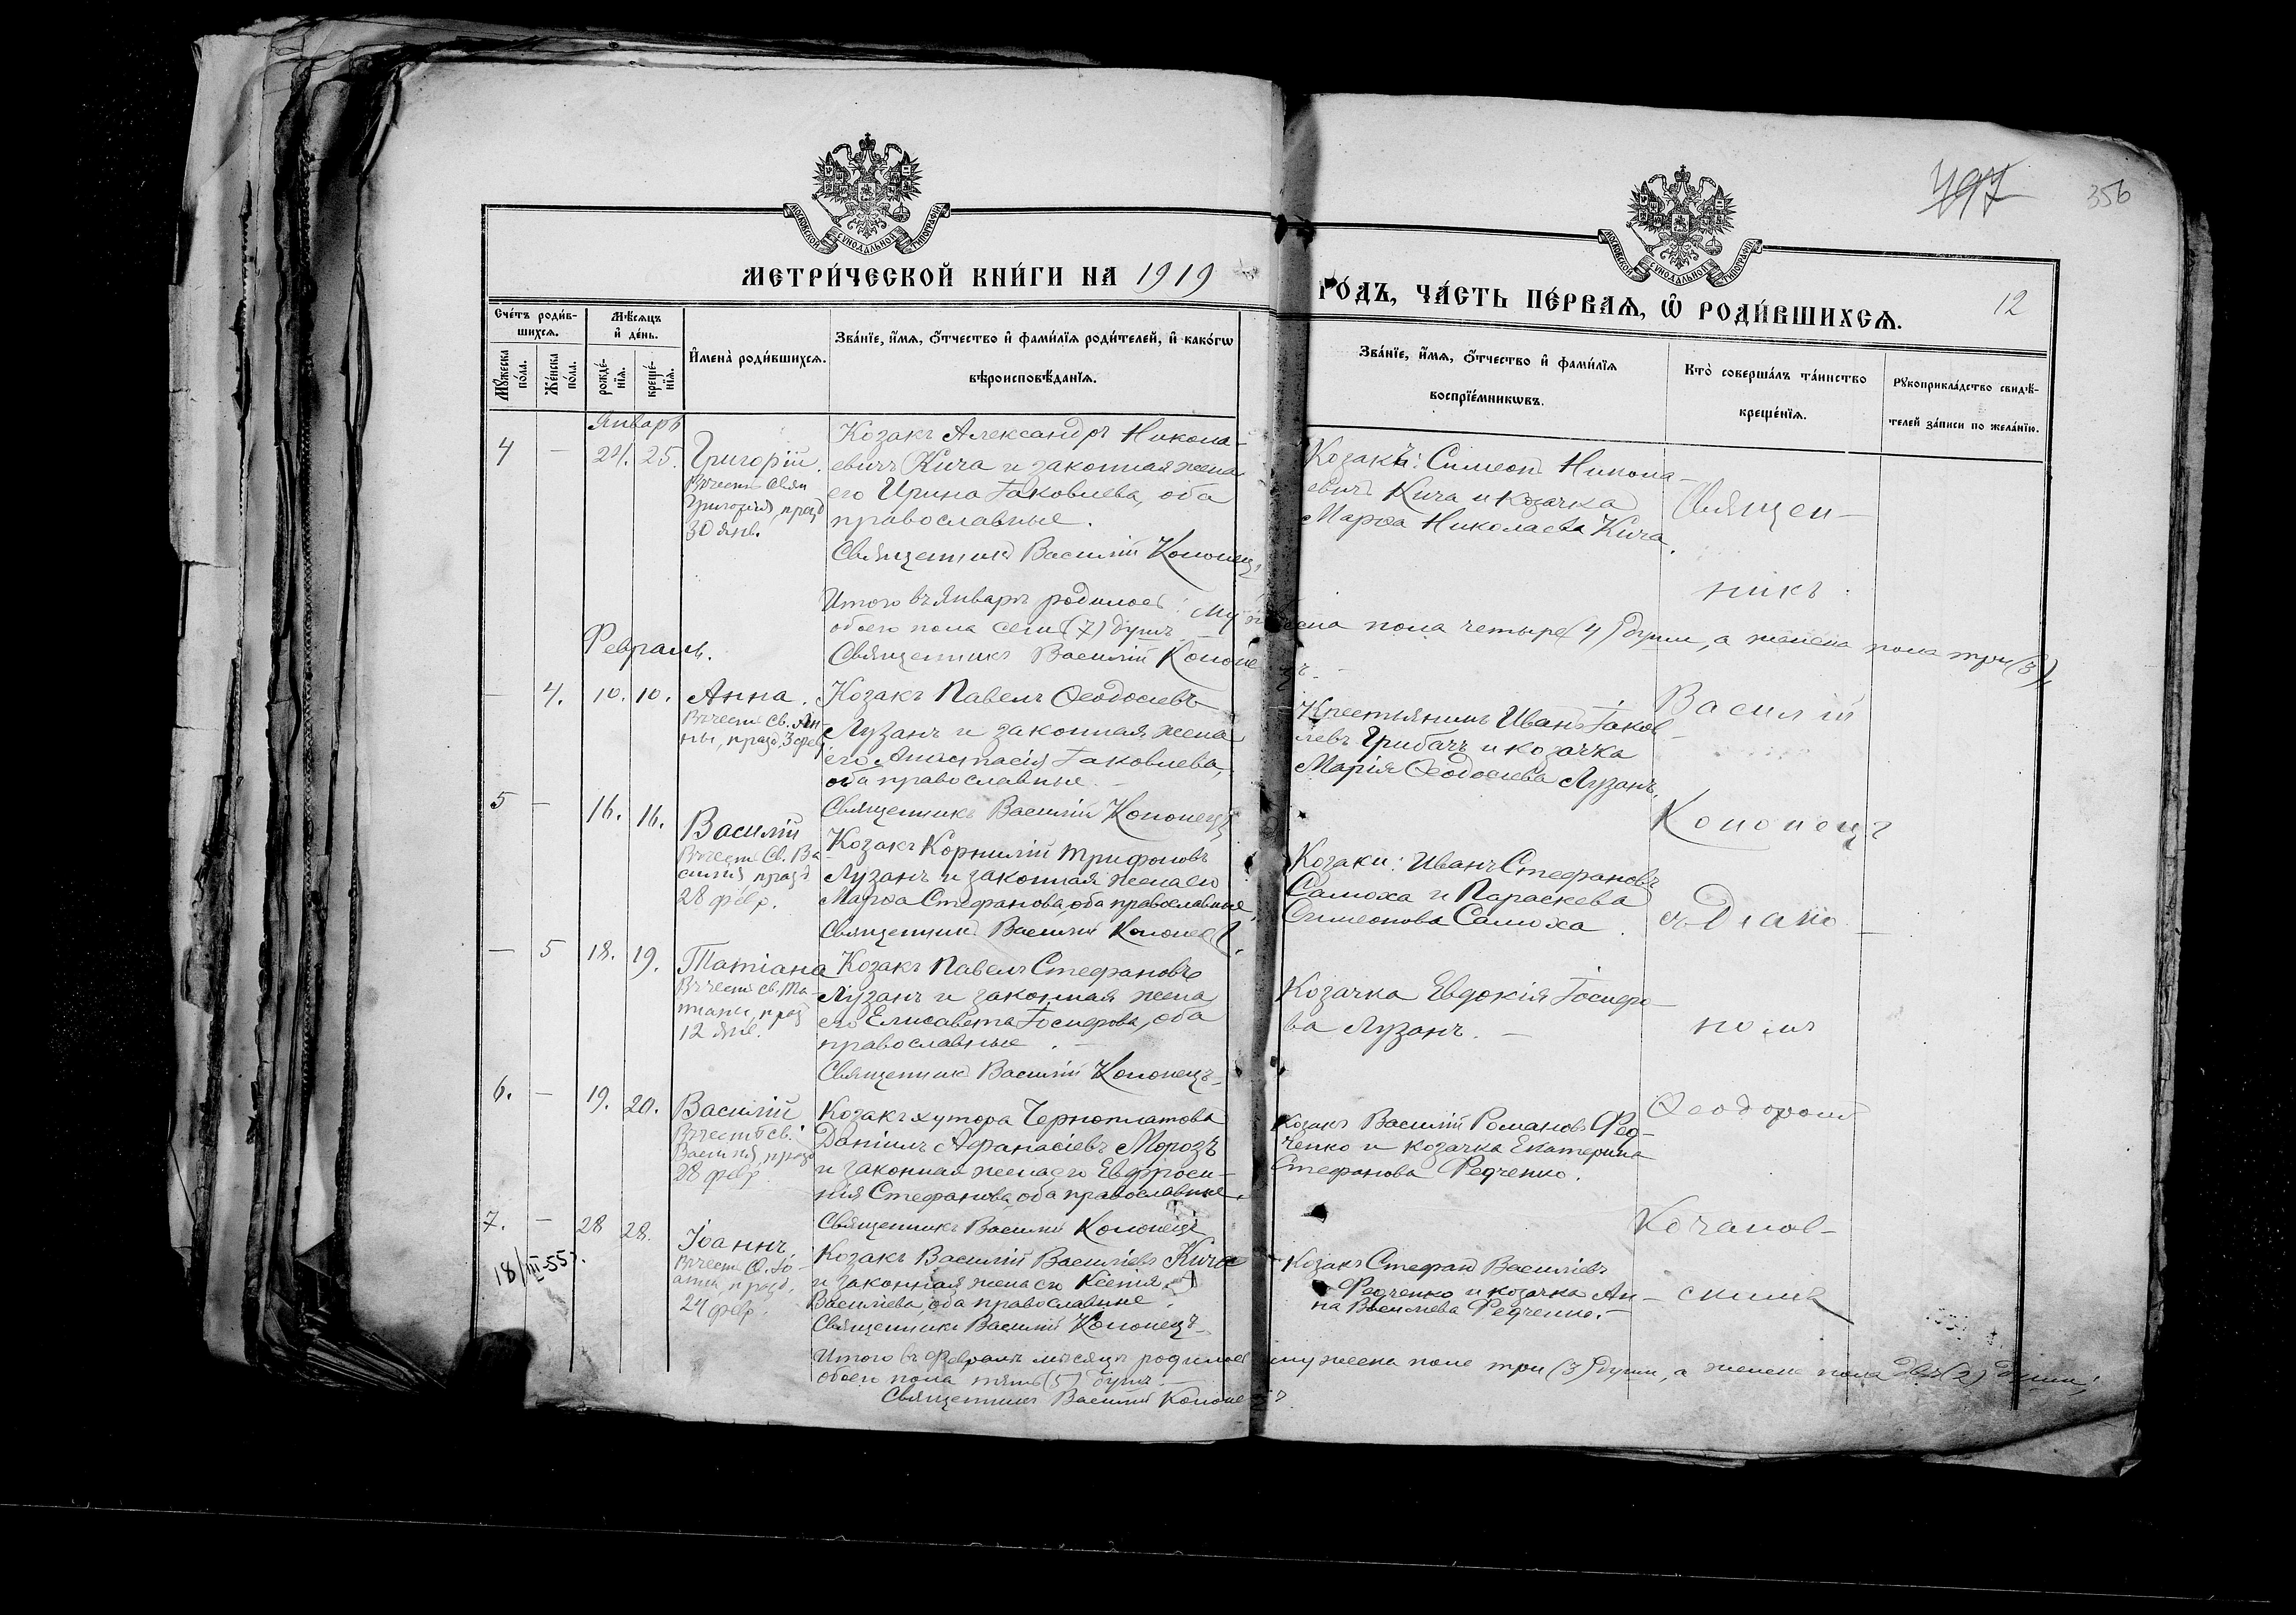 497
356
МОСКОВСКОЙ СѴНОДАЛЬНОЙ ТИПОГРАФІИ
МОСКОВСКОЙ СѴНОДАЛЬНОЙ ТИПОГРАФІИ
МЕТРИ́ЧЕСКОЙ КНИ́ГИ НА 1919
ГО́ДЪ, ЧА́СТЬ ПЕ́РВАѦ, Ѽ РОДИ́ВШИХСѦ.
12
Сче́тъ роди́в-
шихсѧ.
Мѣ́сѧцъ
и҆ де́нь.
И҆мена̀ роди́вшихсѧ.
Зва́нїе, и҆́мѧ, ѻ҆́тчество и҆ фами́лїѧ роди́телей, и҆ како́гѡ
вѣроисповѣ́данїѧ.
Мꙋ́жеска по́ла.
Же́нска по́ла.
рожде́-нїѧ.
креще́-нїѧ.
Зва́нїе, и҆́мѧ, ѻ҆́тчество и҆ фами́лїѧ
воспрїе́мникѡвъ.
Кто̀ соверша́лъ та́инство
креще́нїѧ.
Рꙋкоприкла́дство свидѣ́-
телей за́писи по жела́нїю.
Январь
4 — 24. 25. Григорій.
Въ честь Свят
Григорія, празд
30 янв.
Козакъ Александръ Никола-
евичъ Кича и законная жена
его Ирина Іаковлева, оба
православные.
Священникъ Василій Кононецъ
Козаки: Симеонъ Никола-
евичъ Кича и козачка
Марѳа Николаева Кича.
Священ-
никъ
Итого въ Январѣ родилось: мужеска пола четыре (4) души, а женска пола три (3),
обоего пола семь (7) душъ. —
Священникъ Василій Кононецъ. —
Февраль.
— 4. 10. 10. Анна.
Въ честь Св. Ан-
ны, празд. 3 февр
Козакъ Павелъ Ѳеодосіевъ
Лузанъ и законная жена
его Анастасія Іаковлева,
оба православные. —
Священникъ Василій Кононецъ
Крестьянинъ Иванъ Іаков-
левъ Грибачъ и козачка
Марія Ѳеодосіева Лузанъ.
Василій
Кононецъ
5 — 16. 16. Василій
Въ честь Св. Ва-
силія празд
28 февр.
Козакъ Корнилій Трифоновъ
Лузанъ и законная жена его
Марѳа Стефанова, оба православные,
Священникъ Василій Кононецъ.
Козаки: Иванъ Стефановъ
Самоха и Параскева
Симеонова Самоха.
съ Діако-
— 5 18. 19. Татіана
Въ честь св. Та-
тіаны, празд
12 янв.
Козакъ Павелъ Стефановъ
Лузанъ и законная жена
его Елисавета Іосифова, оба
православные. —
Священникъ Василій Кононецъ.
Козачка Евдокія Іосифо-
ва Лузанъ. —
номъ
6. — 19. 20. Василій
Въ честь св.
Василія, празд
28 февр
Козакъ хутора Черноплатова
Даніилъ Аѳанасіевъ Морозъ
и законная жена его Евфроси-
нія Стефанова, оба православные.
Священникъ Василій Кононецъ
Козакъ Василій Романовъ Фед-
ченко и козачка Екатерина
Стефанова Федченко.
Ѳеодоромъ
Кочанов-
скимъ
7. — 28 28. Іоаннъ.
18/III-55 г.
Въ честь Св. Іо-
анна, празд.
24 февр.
Козакъ Василій Васильевъ Кича
и законная жена его Ксенія
Васильева, оба православные.
Священникъ Василій Кононецъ
Козакъ Стефанъ Васильевъ
Федченко и козачка Ан-
на Васильева Федченко. —
Итого въ Февралѣ мѣсяцѣ родилось мужеска пола три (3) души, а женска пола двѣ (2) души;
обоего пола пять (5) душъ. —
Священникъ Василій Кононецъ